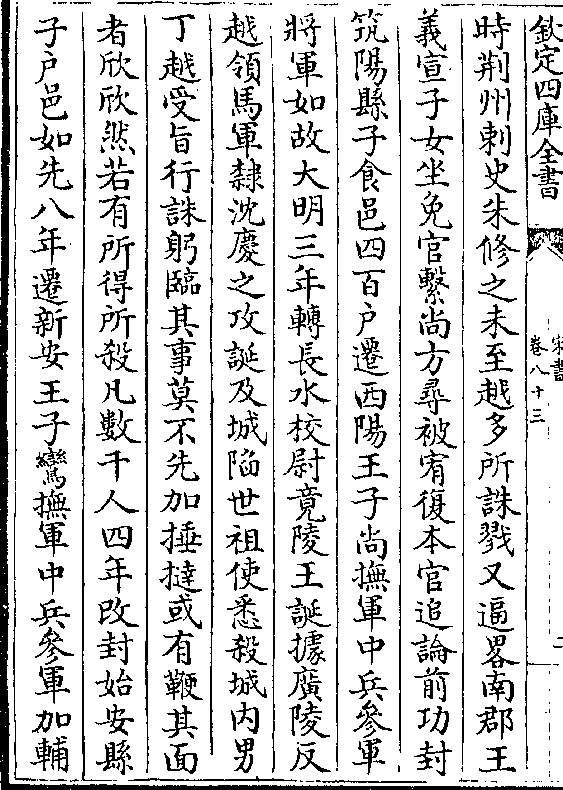 欽定四庫全書
宋書
卷八十三
二
時荆州刺史朱修之未至越多所誅戮又逼畧南郡王
義宣子女坐免官繫尚方尋被宥復本官追論前功封
筑陽縣子食邑四百户遷西陽王子尚撫軍中兵參軍
將軍如故大明三年轉長水校尉竟陵王誕據廣陵反
越領馬軍隸沈慶之攻誕及城陷世祖使悉殺城内男
丁越受旨行誅躬臨其事莫不先加捶撻或有鞭其面
者欣欣然若有所得所殺凡數千人四年改封始安縣
子户邑如先八年遷新安王子鸞撫軍中兵參軍加輔